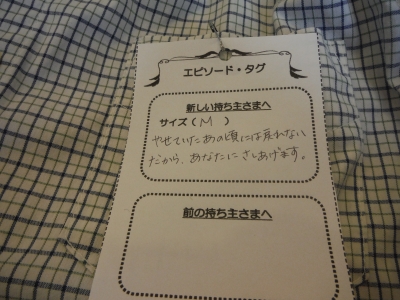 エピソード・タグ
新しい持ち主さまへ
サイズ(M)
やせていたあの頃には戻れない
だから、あなたにさしあげます。
前の持ち主さまへ